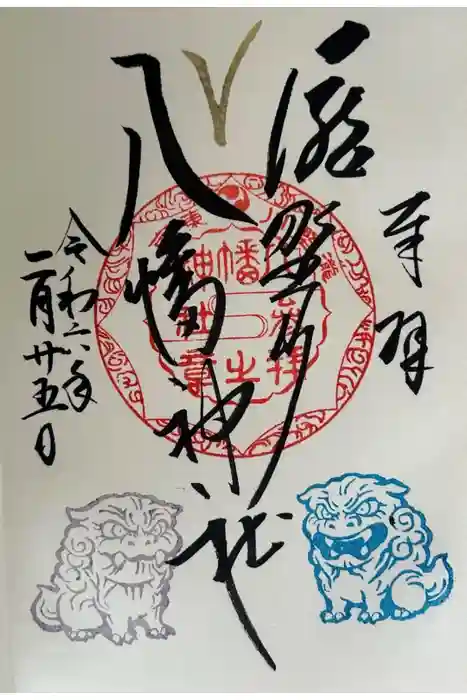 奉拝
滝野川
八幡神社
令和六年
二月廿五日